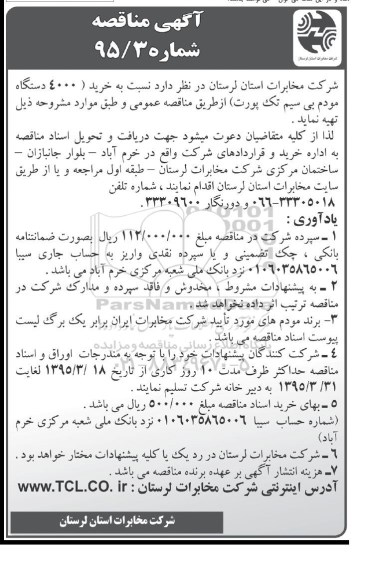 آگهی مناقصه
شماره ۹۵/۳
شرکت مخابرات استان لرستان
شرکت مخابرات استان لرستان در نظر دارد نسبت به خرید ( ۴۰۰۰ دستگاه
مودم بی سیم تک پورت) ازطریق مناقصه عمومی و طبق موارد مشروحه ذیل
تهیه نماید .
لذا از کلیه متقاضیان دعوت میشود جهت دریافت و تحویل اسناد مناقصه
به اداره خرید و قراردادهای شرکت واقع در خرم آباد – بلوار جانبازان –
ساختمان مرکزی شرکت مخابرات لرستان – طبقه اول مراجعه و یا از طریق
سایت مخابرات استان لرستان اقدام نمایند ، شماره تلفن
۳۳۳۰۵۰۱۸-۰۶۶ و دورنگار ۳۳۳۰۹۶۰۰ .
یادآوری :
۱ – سپرده شرکت در مناقصه مبلغ ۱۱۲/۰۰۰/۰۰۰ ریال بصورت ضمانتنامه
بانکی ، چک تضمینی و یا سپرده نقدی واریز به حساب جاری سیبا
۰۱۰۶۰۳۵۸۶۵۰۰۶ نزد بانک ملی شعبه مرکزی خرم آباد می باشد .
۲ – به پیشنهادات مشروط ، مخدوش و فاقد سپرده و مدارک شرکت در
مناقصه ترتیب اثر داده نخواهد شد .
۳– برند مودم های مورد تأیید شرکت مخابرات ایران برابر یک برگ لیست
پیوست اسناد مناقصه می باشد .
۴ – شرکت کنندگان پیشنهادات خود را با توجه به مندرجات اوراق و اسناد
مناقصه حداکثر ظرف مدت ۱۰ روز کاری از تاریخ ۱۸ /۱۳۹۵/۳ لغایت
۳۱ /۱۳۹۵/۳ به دبیر خانه شرکت تسلیم نمایند .
۵ – بهای خرید اسناد مناقصه مبلغ ۵۰۰/۰۰۰ ریال می باشد .
(شماره حساب سیبا ۰۱۰۶۰۳۵۸۶۵۰۰۶ نزد بانک ملی شعبه مرکزی خرم
آباد)
۶ – شرکت مخابرات لرستان در رد یک یا کلیه پیشنهادات مختار خواهد بود .
۷– هزینه انتشار آگهی بر عهده برنده مناقصه می باشد .
آدرس اینترنتی شرکت مخابرات لرستان : www.TCL.CO. ir
شرکت مخابرات استان لرستان